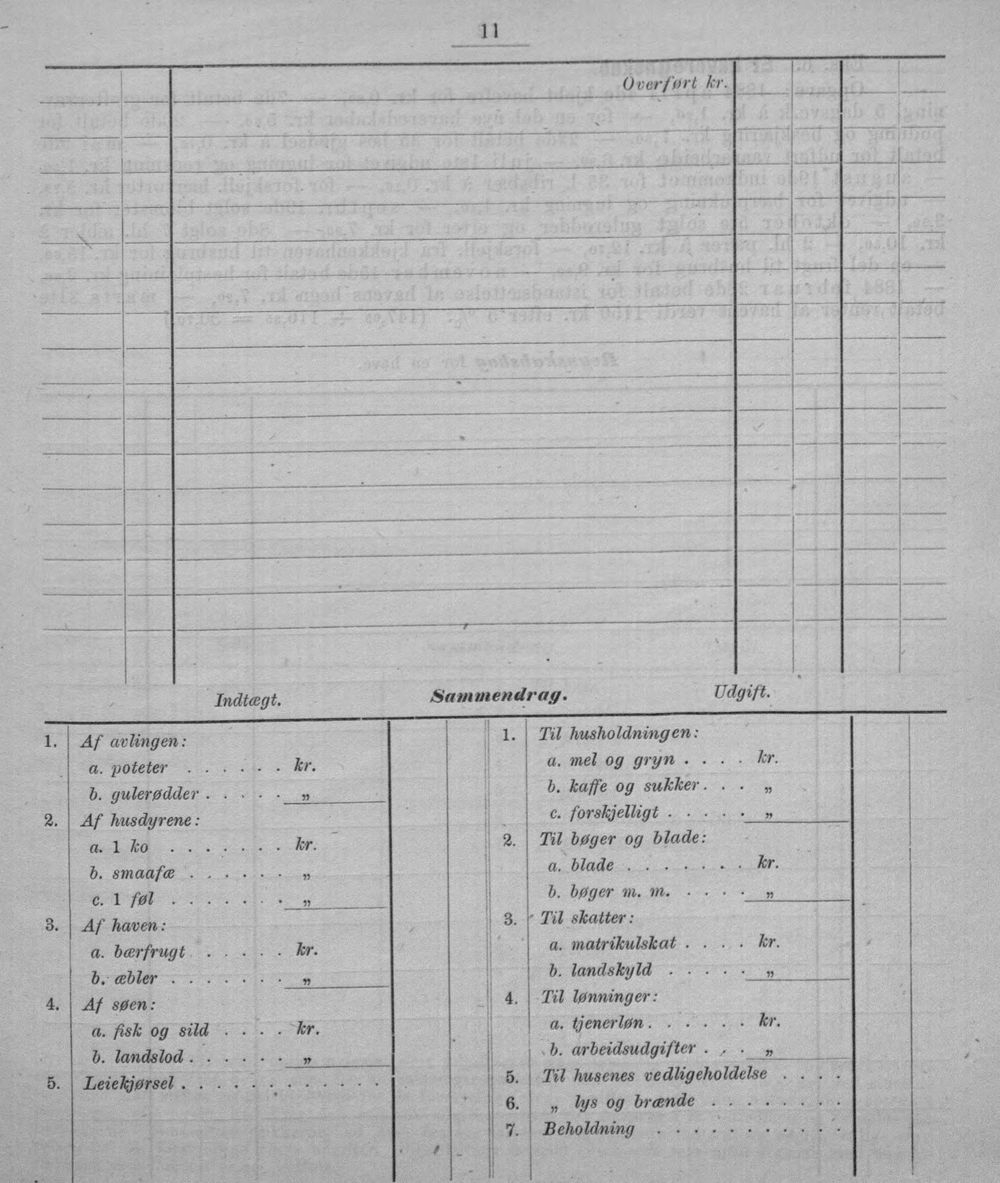 11
Overført kr.
Indtægt. Sammendrag. Udgift.
1. Af avlingen:
a. poteter . . . . . . kr.
b. gulerødder . . . . . „
2. Af husdyrene:
a. 1 ko . . . . . . . kr.
b. smaafæ . . . . . . „
c. 1 føl . . . . . . . „
3. Af haven:
a. bærfrugt . . . . . kr.
b. æbler . . . . . . . „
4. Af søen:
a. fisk og sild . . . . kr.
b. landslod . . . . . . „
5. Leiekjørsel . . . . . . . . . . . .
1. Til husholdningen:
a. mel og gryn . . . . kr.
b. kaffe og sukker . . . „
c. forskjelligt . . . . . „
2. Til bøger og blade:
a. blade . . . . . . . kr.
b. bøger m. m. . . . . „
3. Til skatter:
a. matrikulskat . . . . kr.
b. landskyld . . . . . „
4. Til lønninger:
a. tjenerløn . . . . . . kr.
b. arbeidsudgifter . . . „
5. Til husenes vedligeholdelse . . . .
6. „ lys og brænde . . . . . . . .
7. Beholdning . . . . . . . . . . .